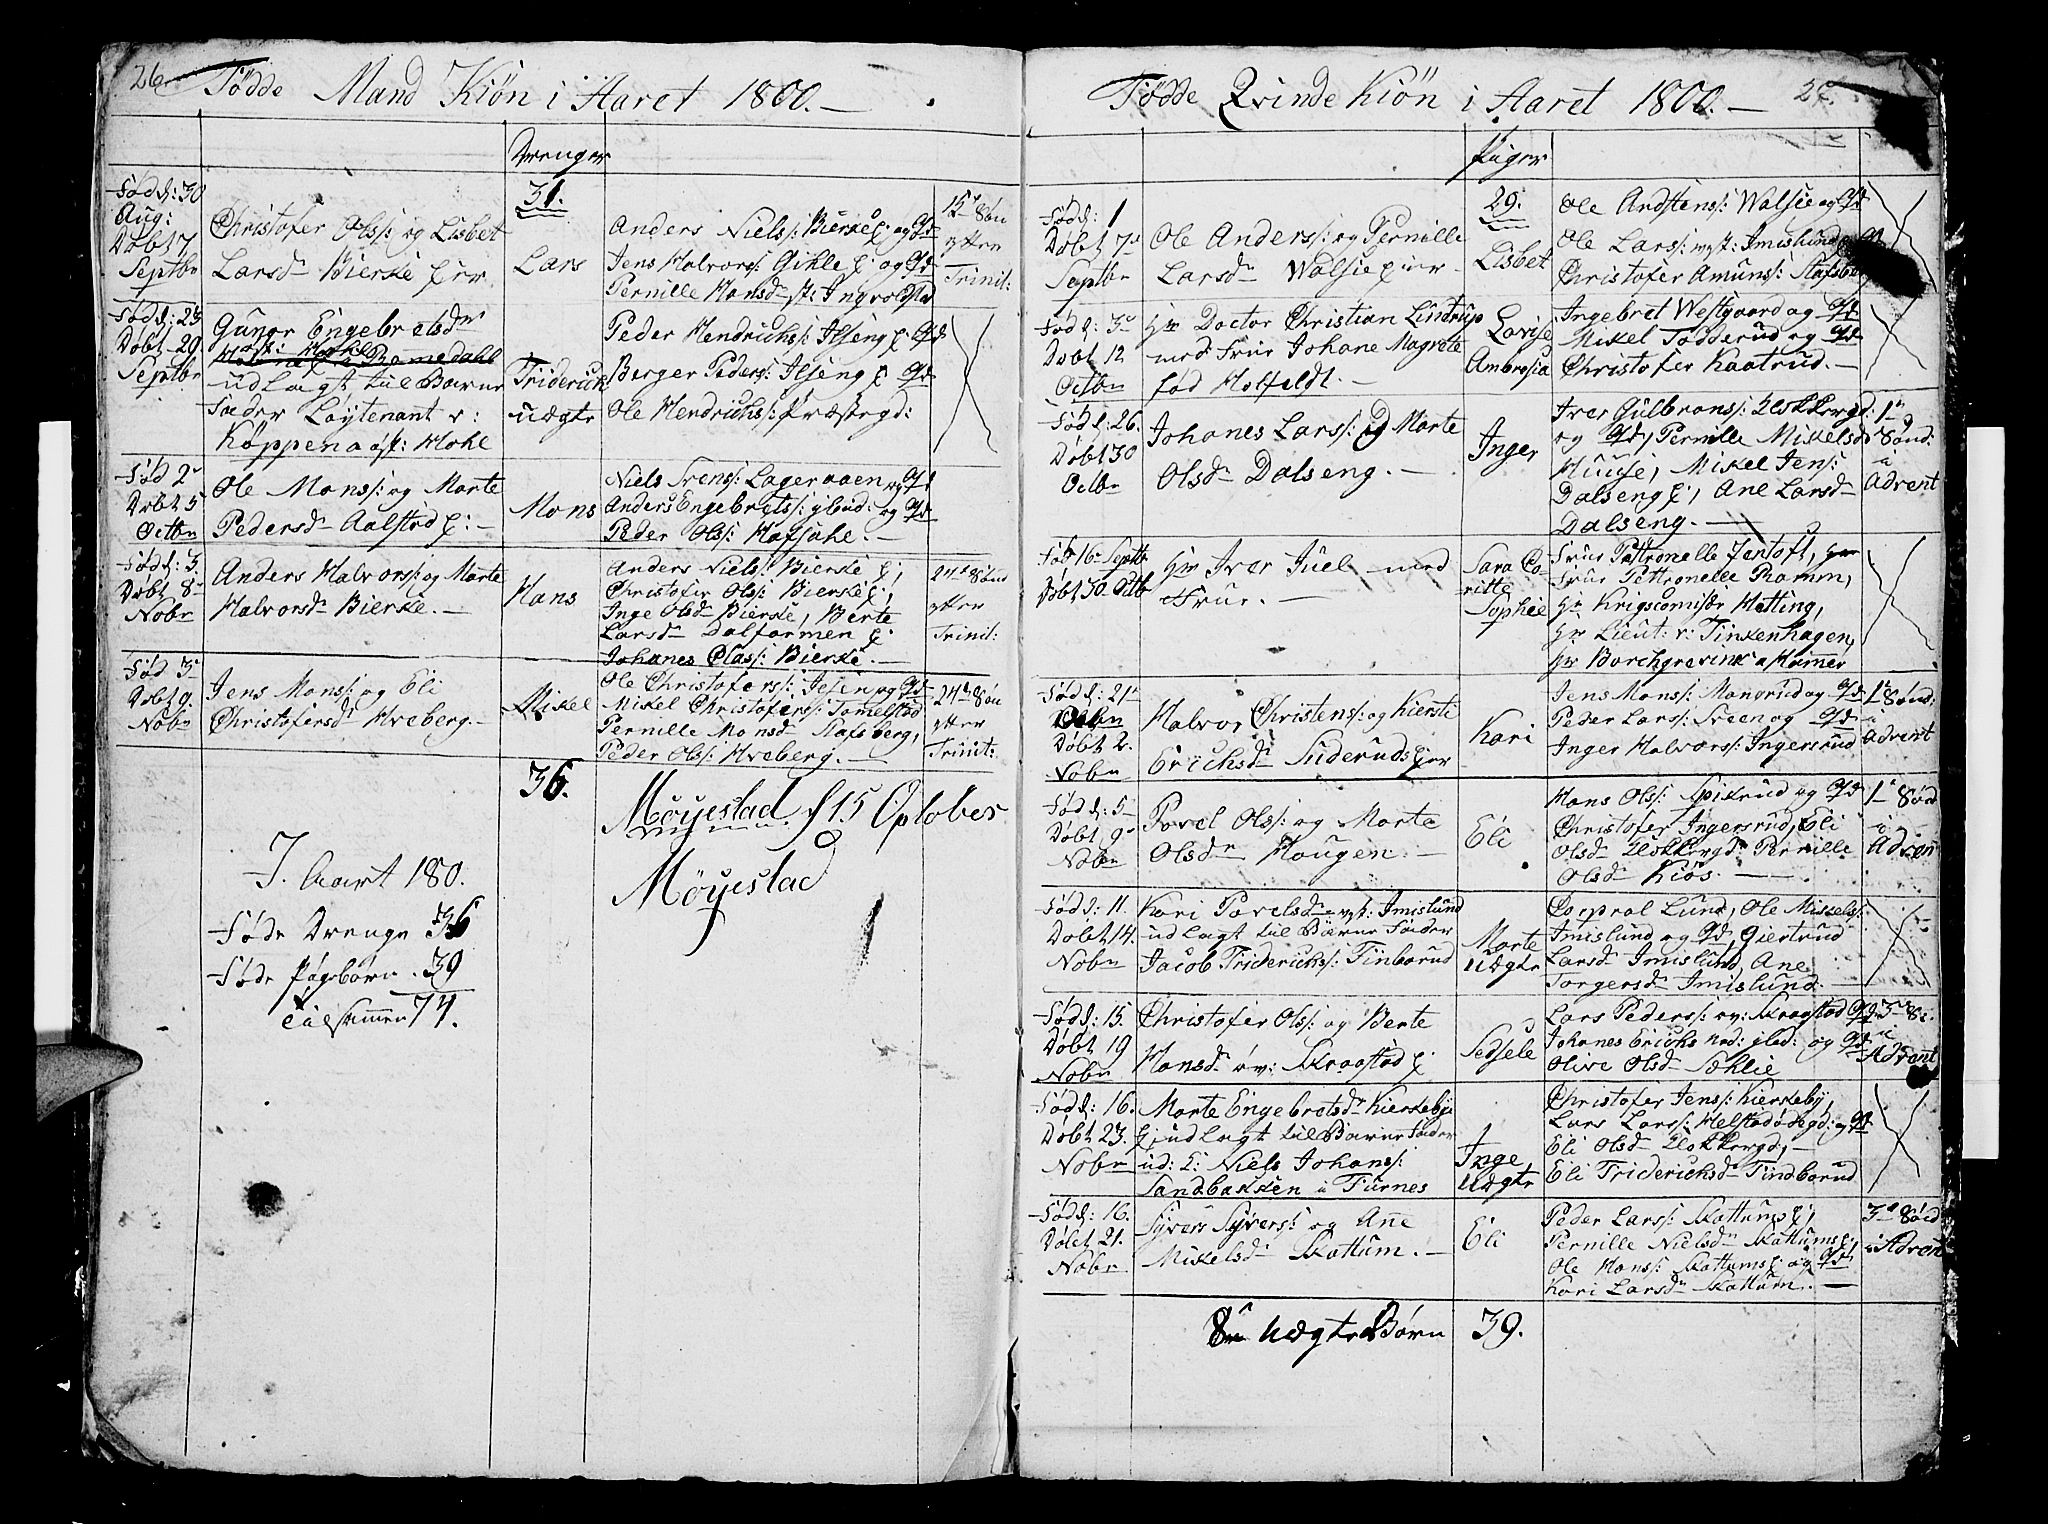 26
Fødde Mand Kiön i Aaret 1800.—
Drenger
31.
Fød d: 30
Aug:
Døbt 7
Septbr
Christofer Ols: og Lisbet
Larsdr Bierke
Lars
Anders Niels: Bierke og
Jens Halvors: Gihle og
Pernille Hansdr Ingvoldstad
15de Søn
efter
Trinit:
Fød d: 23
Døbt 29
Septbr
Gunor Engebretsdr
udlagt til Barne
Fader Løytenant v:
Köppen Hohl
Friderich
uægte
Peder Hendrichs: Ilseng
Berger Peders: Ilseng
Ole Hendrichs: Præstegd:
Fød 2
Døbt 5
Octbr
Ole Mons: og Marte
Pedersdr Aalstad
Mons
Niels Svens: Lageraaen og
Anders Engebrets: og
Peder Ols: Hafsahl.—
Fød d: 3
Døbt 8
Nobr
Anders Halvors: og Marte
Halvorsdr Bierke.—
Hans
Anders Niels: Bierke
Christofer Ols: Bierke
Inge Olsdr Bierke, Berte
Larsdr Dalfarmen
Johanes Clas: Bierke.—
24de Sønd
efter
Trinit:
Fød 3
Døbt 9
Nobr
Jens Mons: og Eli
Christofersdr Hveberg.—
Mikel
Ole Christofers: Jesen og
Mikel Christofers: Tomelstad
Pernille Monsdr Stafsberg,
Peder Ols: Hveberg.—
24de Søn
efter
Trinit:
36.
Möyestad d 15 October
Möyestad
I Aaret 180.
Føde Drenge 36
Føde Pigebørn. 39
tilsammen 74.
Fødde Qvinde Kiön i Aaret 1800.—
27.
Piger
29.
Fød d: 1
Døbt 7
Septbr
Ole Anders: og Pernille
Larsdr Walsie eier
Lisbet
Ole Andstens: Walsie og
Ole Lars: Imislund
Christofer Amuns: Stafsberg
Fød d: 3
Døbt 12
Octbr
Hr Doctor Christian Lindrup
med Frue Johane Magrete
fød Holfeldt.—
Lovise
Ambrosia
Ingebret Westgaard og
Mikel Fodderud og
Christofer Kaatrud.—
Fød d: 26.
Døbt 30
Octbr
Johanes Lars: og Marte
Olsdr Dalseng.—
Inger
Iver Gulbrans: Klokkergd:
og Pernille Mikelsdr
Huuse, Mikel Jens:
Dalseng, Ane Larsdr
Dalseng.—
1
Sønd:
i
Advent
Fød 16 Septbr
Døbt 30 Octb
Hr Iver Juel med
Frue.—
Sara Co-
ritte
Sophie
Frue Pettronelle Jentoft,
Frue Pettronelle Ramm,
Hr Krigscomisær Hetting,
Hr Lieut: v: Finkenhagen,
Hr Borchgrevink a Hamer
Fød d: 21
Octbr
Døbt 2.
Nobr
Halvor Christens: og Kiersti
Erichsdr Suderuds eier
Kari
Jens Mons: Mangrud og
Peder Lars: Sveen og
Inger Halvors: Ingersrud
1 Sønd:
i
Advent
Fød d: 5
Døbt 9
Nobr
Povel Ols: og Marte
Olsdr Haugen.—
Eli
Hans Ols: Spikrud og
Christofer Ingersrud, Eli
Olsdr Klokkergd: Pernille
Olsdr Kiös.—
1 Sønd
i
Advent
Fød d: 11.
Døbt 14.
Nobr
Kari Povelsdr Imislund
udlagt til Barne Fader
Jacob Friderichs: Finborud
Marte
Uægte
Corpral Lund, Ole Mikels:
Imislund og Giertrud
Larsdr Imislund, Ane
Torgersdr Imislund.—
Fød d: 15.
Døbt 19
Nobr
Christofer Ols: og Berte
Hansdr öv: Skraastad
Sedsele
Lars Peders: öv: Skraastad
Johanes Erichs og
Olive Olsdr Sæhlie
3 S:
i
Advent
Fød d: 16.
Døbt 23.
Nobr
Marte Engebretsdr Kierkebye
udlagt til Barne Fader
Niels Johans:
Sandbakken i Furnes
Inge
Uægte
Christofer Jens: Kierkebÿ,
Lars Lars: Helstad ödegd: og
Eli Olsdr Klokkergd,—
Eli Friderichsdr Findborud
Fød d: 16.
Døbt 21.
Nobr
Syver Syvers: og Ane
Mikelsdr Skattum.—
Eli
Peder Lars: Skattums
Pernille Nielsdr Skattums
Ole Hans: Skattums og
Kari Larsdr Skattum.—
3 Sønd
i Advent
8 Uægte Børn
39.